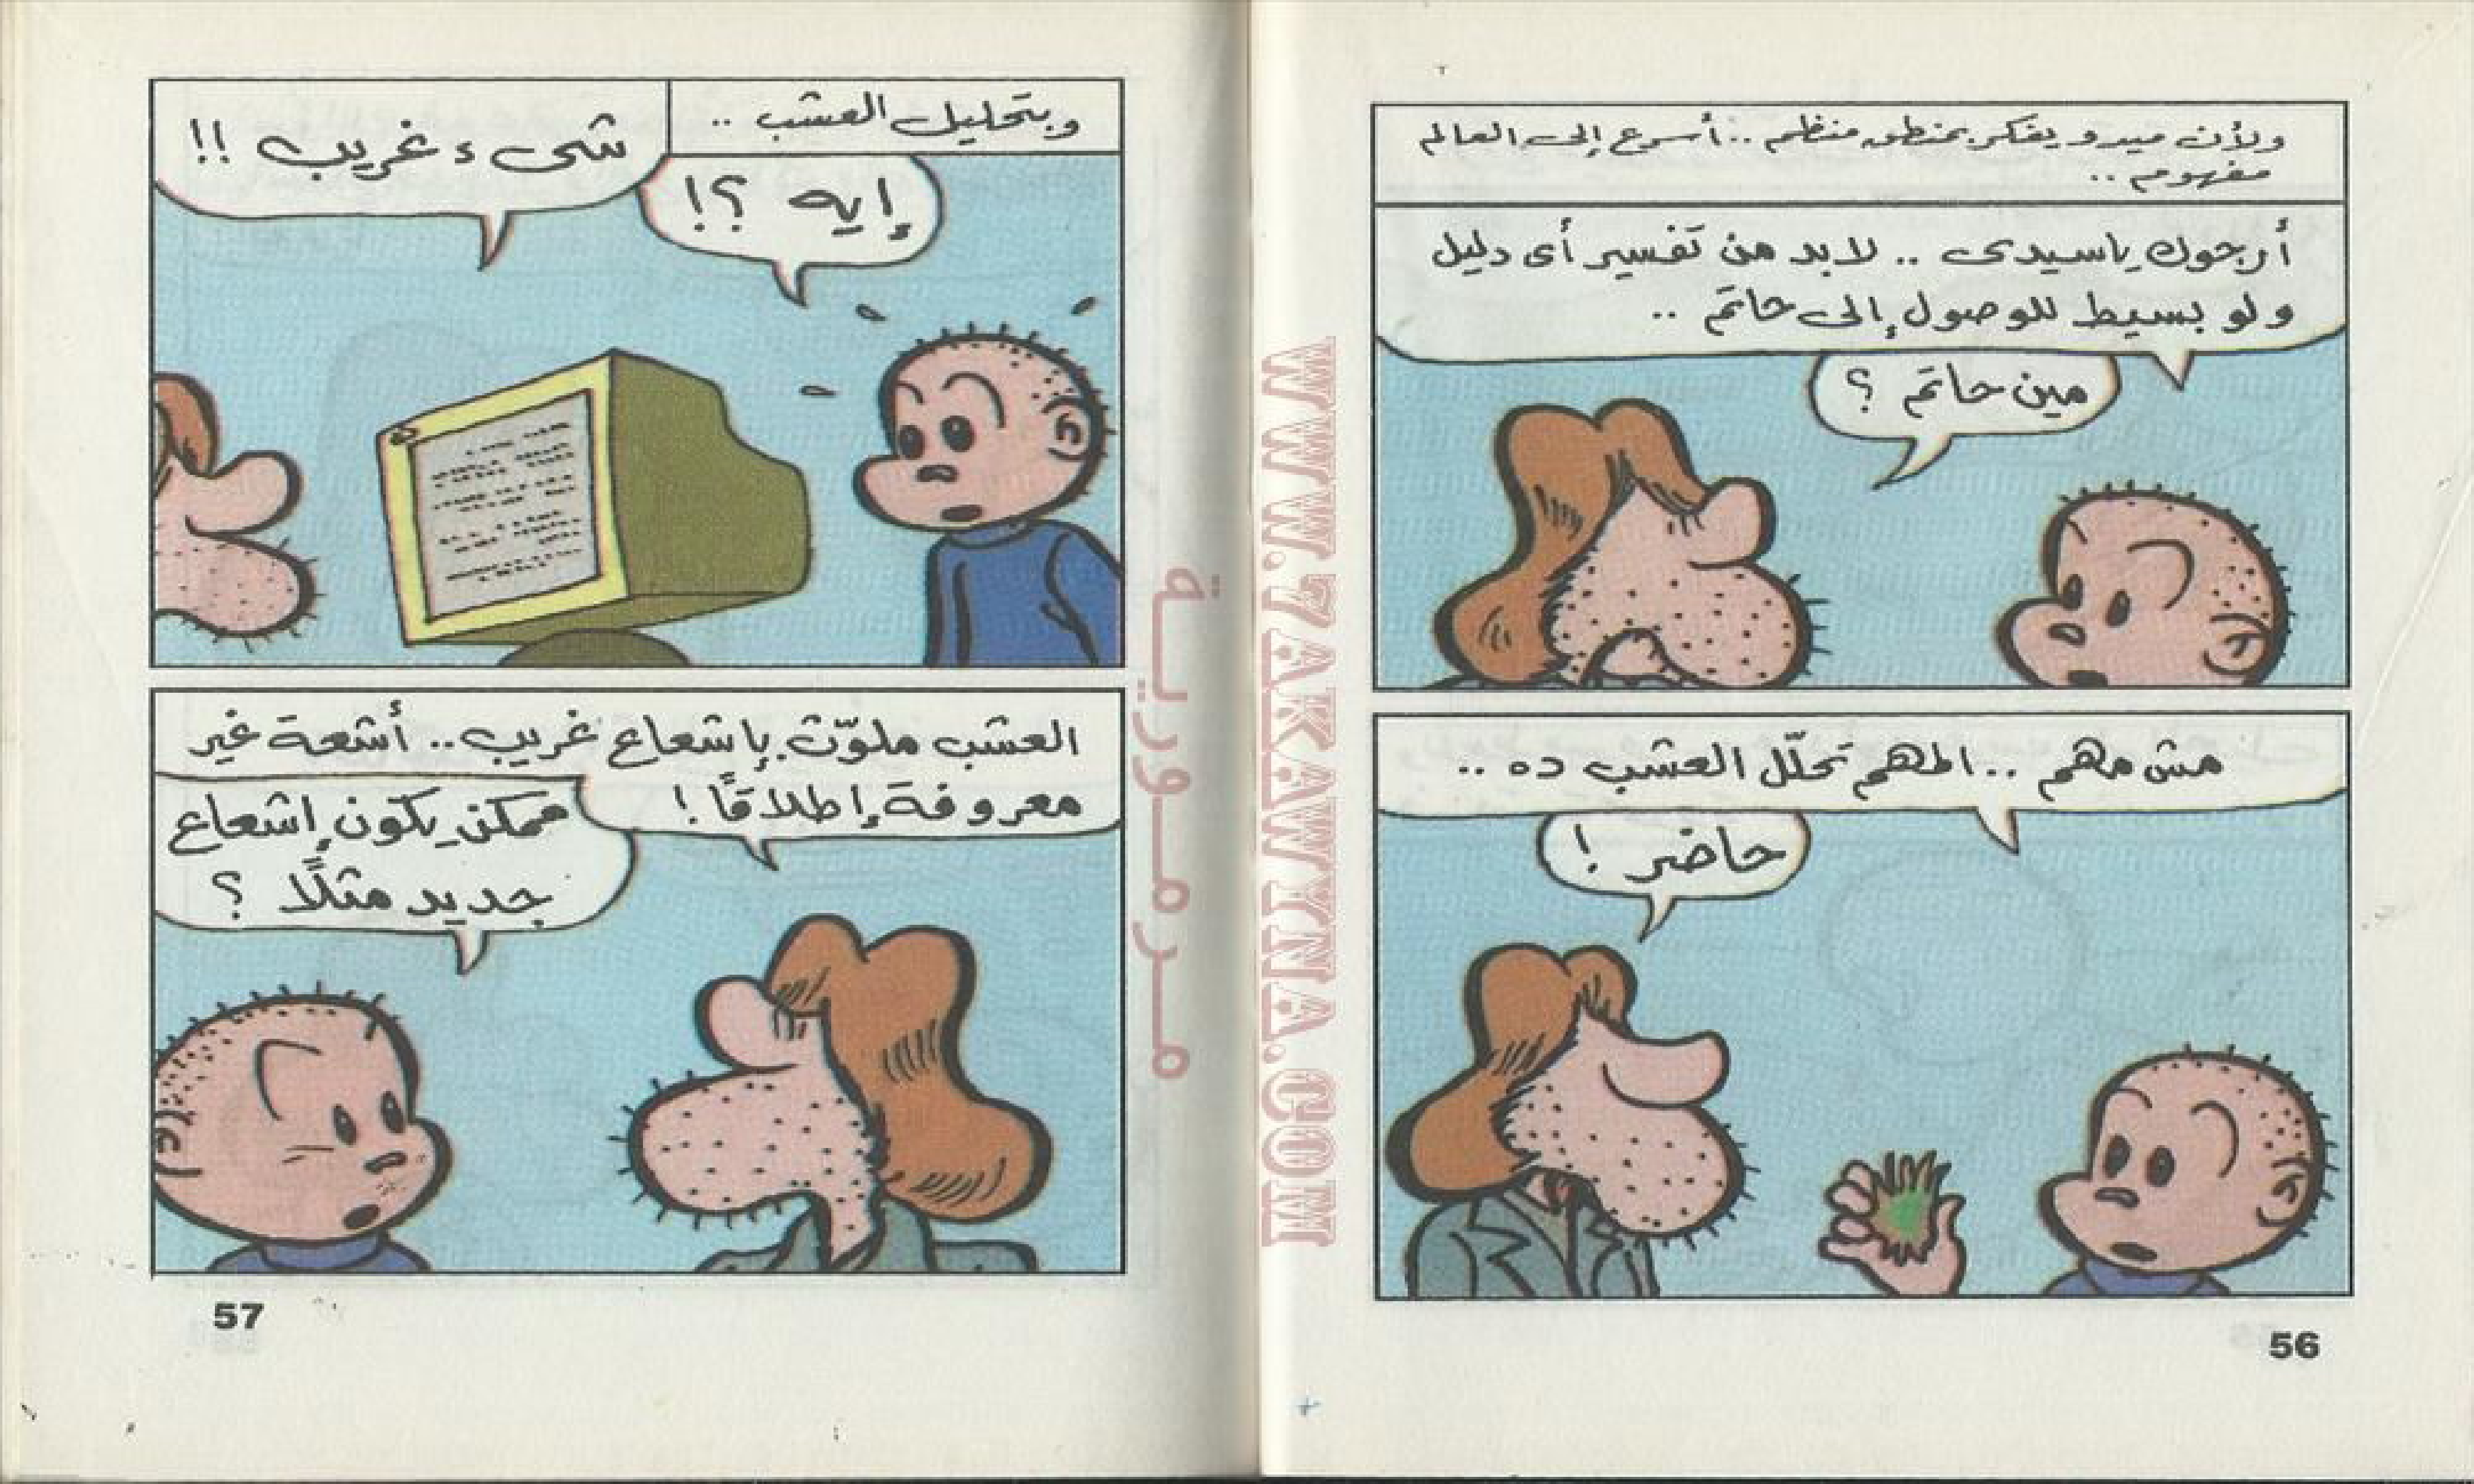 ولأن ميدو يفكر بمنطق منظم .. أسرع إلى العالم
مفهوم ..
أرجوك يا سيدى .. لابد من تفسير أى دليل
ولو بسيط للوصول إلى حاتم ..
مين حاتم ؟
مش مهم .. المهم تحلّل العشب ده ..
حاضر !
56
وبتحليل العشب ..
إيه ؟!
شىء غريب !!
العشب ملوّث بإشعاع غريب .. أشعة غير
معروفة إطلاقًا !
ممكن يكون إشعاع
جديد مثلًا ؟
57
مرمورية
WWW.7AKAWYNA.COM